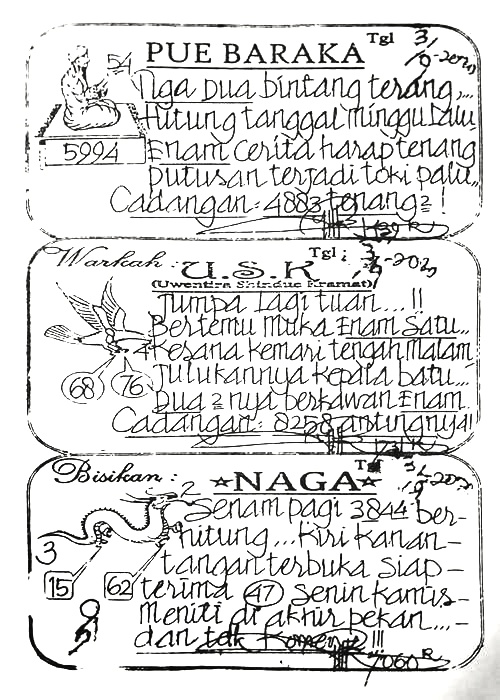 PUE BARAKA
Tgl 3/
54
Nga Dua bintang terang,...
Hitung tanggal minggu Lalu
5994
Enam Cerita harap tenang
putusan terjadi toki palu...
Cadangan: 4883 tenang2 !
Warkah : U.S.K
Tgl :
(Uwentira Shindue Kramat)
Jumpa Lagi tuan...!!
Bertemu Muka Enam Satu...
4 Kesana kemari tengah Malam
68 76
Julukannya kepala batu...
Dua 2 nya berkawan Enam
Cadangan: 8258 antingnya!
Bisikan : NAGA
Tgl
2
Senam pagi 3844 ber-
hitung... Kiri Kanan-
3
tangan terbuka Siap-
15 62
terima 47 Senin kamis-
meniti di akhir pekan...-
dan tdk Komen2 !!!
7060 R